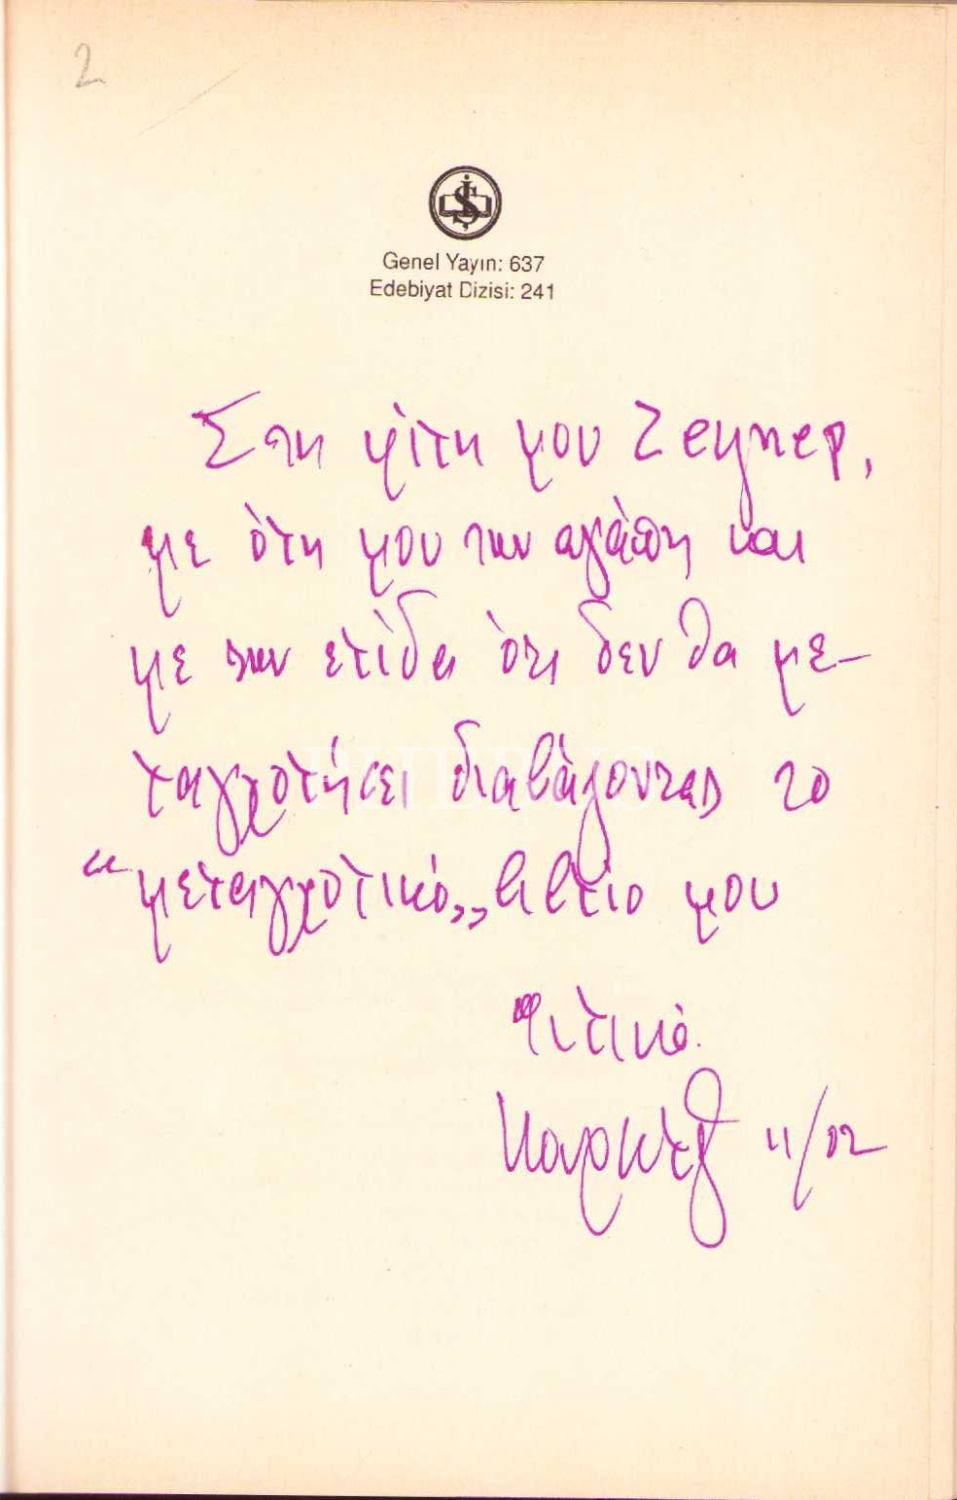 2
İŞ
Genel Yayın: 637
Edebiyat Dizisi: 241
Στη φίλη μου Zeynep,
με όλη μου την αγάπη και
με την ελπίδα ότι δεν θα με-
λαγχολήσει διαβάζοντας το
“μελαγχολικό„ βιβλίο μου
Φιλικά.
11/02